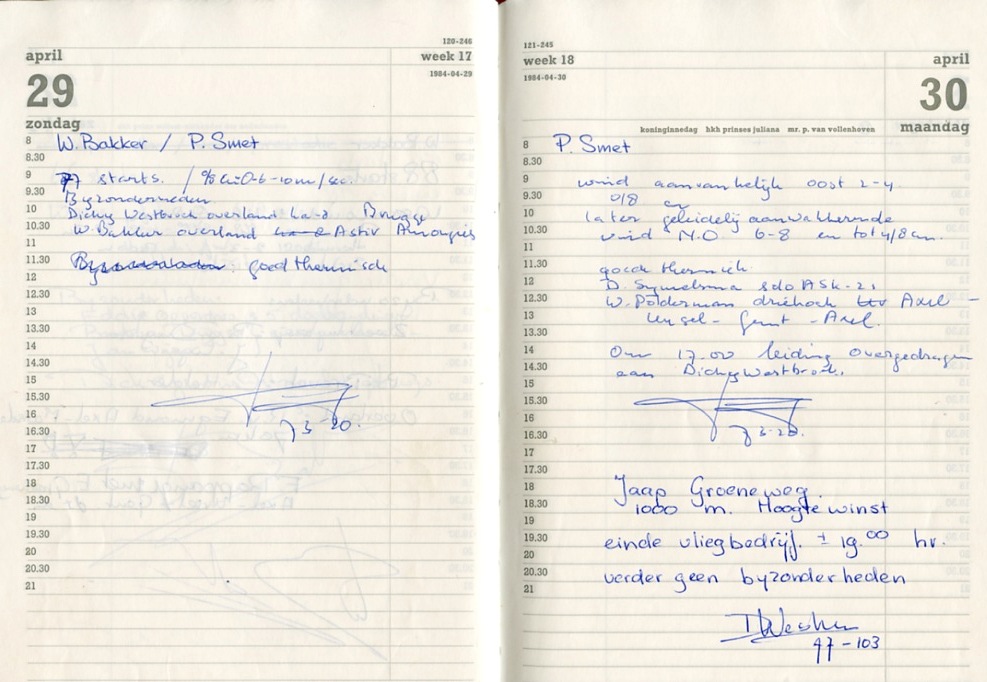 120-246
april
week 17
29
1984-04-29
zondag
8 W. Bakker / P. Smet
8.30
9 starts.
9.30 Byzonderheden
10 Dichy Westbroek overland Brugge
10.30 W. Bakker overland Astir
11
11.30 : goed thermisch
12
12.30
13
13.30
14
14.30
15
15.30
16
16.30 73-20.
17
17.30
18
18.30
19
19.30
20
20.30
21
121-245
week 18
april
1984-04-30
30
koninginnedag hkh prinses juliana mr. p. van vollenhoven
maandag
8 P. Smet
8.30
9 wind aanvankelijk oost 2-4
9.30 0/8 en
10 later geleidelij aanwakkerende
10.30 wind N.O. 6-8 en tot 4/8 cu.
11
11.30 goede thermiek.
12 D. Symelsma solo ASK-21
12.30 W. Polderman driehoek Axel -
13 - Gent - Axel.
13.30
14 Om 17.00 leiding overgedragen
14.30 aan Dichy Westbroek.
15
15.30
16
16.30 73-20.
17
17.30
18 Jaap Groeneweg.
18.30 1000 m. Hoogte winst
19
19.30 einde vliegbedrijf. ± 19.00 hr.
20
20.30 verder geen byzonderheden
21
47-103